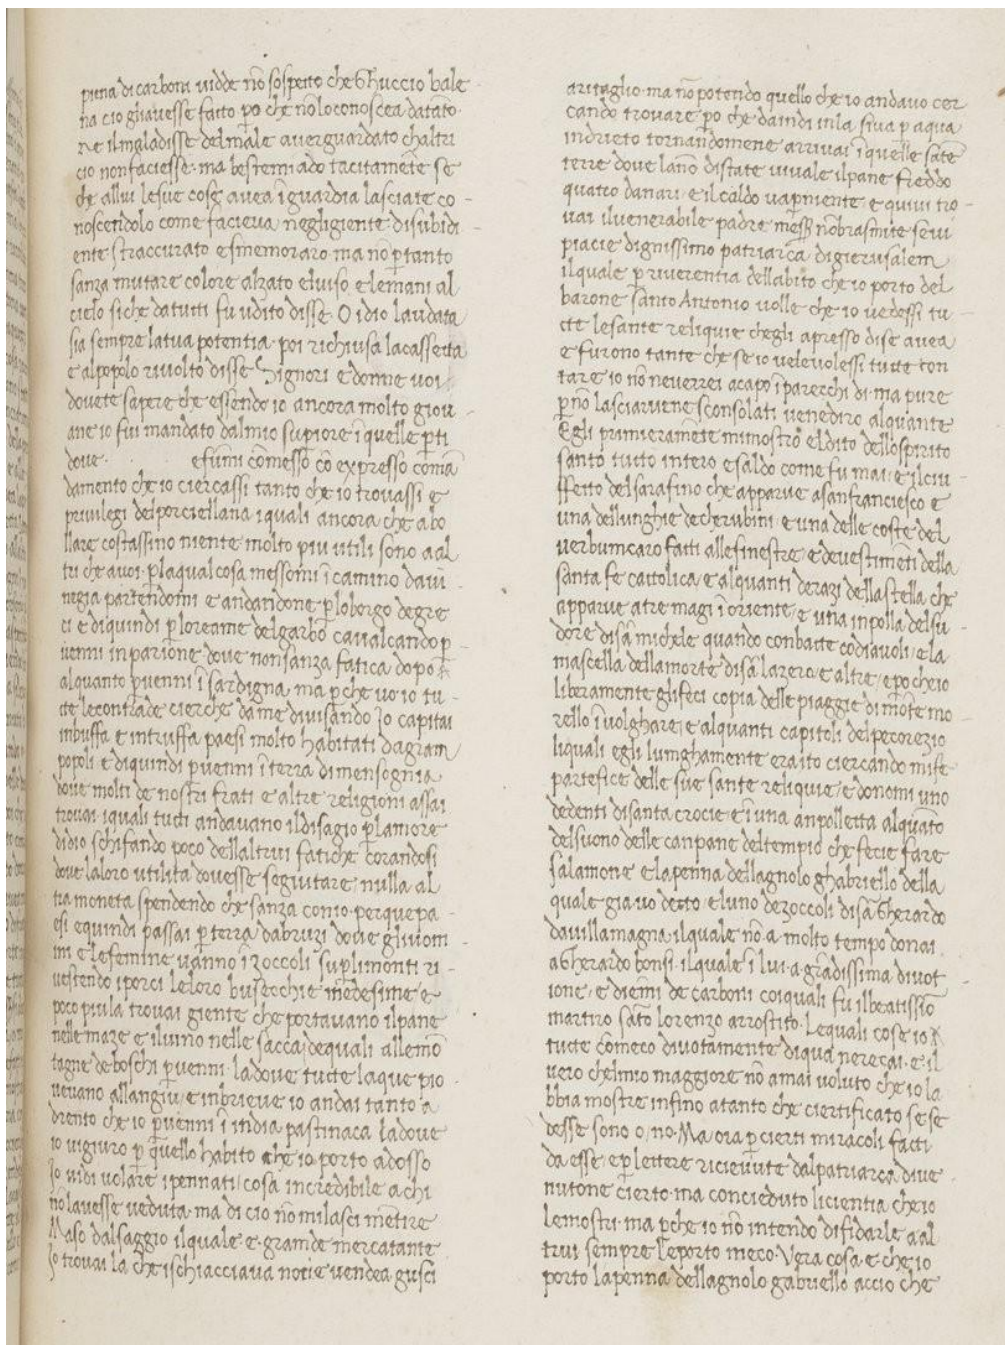 piena di carboni vidde nō sospetto che Ghuccio bale
na cio gliavesse fatto po che nōlo conoscea datāto
ne il maladisse delmale averguardato chaltri
cio nonfaciesse · ma bestemiado tacitamēte se
che allui lesue cose avea ī guardia lasciate co
noscendolo come facieva negligiente disubidi
ente straccurato e smemoraro · ma nō ptanto
sanza mutare colore alzato elviso elemani al
cielo siche datutti fu udito disse · O idio laudata
sia sempre latua potentia · poi richiusa lacassetta
e alpopolo rivolto disse · Signori e donne voi
dovete sapere che essendo io ancora molto giov
ane io fui mandato dalmio supiore ī quelle pti
dove · efumi cōmesso cō expresso comā
damento che io ciercassi tanto che io trovassi e
privilegi del porciellana iquali ancora che abo
llare costassino niente molto piu utili sono aal
tri che avoi · plaqualcosa messomi ī camino davi
negia partendomi e andandone plobergo degre
ci e diquindi ploreame delgarbo cavalcando p
venni inparione dove nonsanza fatica dopo
alquanto pvenni ī sardigna ma pche vo io tu
tte lecontrade cierche dame divisando Io capitai
inbuffa e intruffa paesi molto habitati dagram
popoli e diquindi pvenni ī terra dimensognia
dove molti de nostri frati e altre religioni assai
trovai iquali tutti andavano ildisagio plamore
didio schifando poco dellaltrui fatiche corandosi
dove laloro utilita dovesse segivitare nulla al
tra moneta spendendo che sanza conio · perquepa
esi equindi passai pterra dabruzi dove gliuom
ini e lefemine vanno ī zoccoli suplimonti ri
vestendo iporci leloro busecchie medesime e
poco piula trovai giente che portavano ilpane
nelle maze e ilvino nelle sacca dequali allemō
tagne deboschi pvenni · ladove tutte laque pio
vevano allangiu e inbrieve io andai tanto a
drento che io pvenni ī india pastinaca ladove
io vigiuro p quello habito che io porto adosso
Io vidi volare ipennati cosa incredibile achi
nō lavesse veduta · ma di cio nō milasci mētire
Maso dalsaggio ilquale · e · gramde mercatante
Io trovai la che ischiacciava noci e vendea gusci
aritaglio · ma nō potendo quello che io andavo cer
cando trovare po che daindi inla siva p aqua
indrieto tornandomene arrivai ī quelle sāte
terre dove lanō distate vivale ilpane freddo
quatro danari · e il caldo vapniente e quivi tro
vai ilvenerabile padre mess nōbrasmite sevi
piacie dignissimo patriarca digierusalem
ilquale p riverentia dellabito che io porto del
barone santo Antonio volle che io vedessi tu
tte lesante reliquie chegli apresso dise avea
e furono tante che se io velevolessi tutte con
tare io nō neverrei acapo ī parecchi di · ma pure
p nō lasciarvene sconsolati venediro alquante
Egli primieramēte mimostro eldito dellospirito
santo tutto intero e saldo come fu mai · e ilciu
ffetto delsarafino che apparve asanfranciesco e
una dellunghie decherubini · e una delle coste del
verbumcaro fatti allefinestre · e devestimēti della
santa fe cattolica e alquanti derazi dellastella che
apparve atre magi ī oriente · e una inpolla delsu
dore disā michele quando conbatte codiavoli · e la
mascella dellamorte disā lazero e altre · e po cheio
liberamente glifeci copia delle piaggie di mōte mo
rello ī volghare e alquanti capitoli delpecorezio
liquali egli lunghamente eraito ciercando mife
partefice delle sue sante reliquie e donomi uno
dedenti disanta crocie · e ī una anpolletta alquāto
delsuono delle canpane deltempio che fecie fare
salamone e lapenna dellagnolo ghabriello della
quale · gia vo detto · e luno dezoccoli disā Gherardo
davillamagna ilquale nō · a · molto tempo donai
aGherardo bonsi · ilquale ī lui · a · grādissima divot
ione · e diemi de carboni coiquali fu ilbeatissīo
martiro sāto lorenzo arrostito · Lequali cose io
tutte cōmeco divotamente diqua nerecai · e · il
vero chelmio maggiore nō amai voluto che io la
bbia mostre infino atanto che ciertificato sese
desse sono o no · Ma ora pcierti miracoli facti
da esse e plettere ricievute dalpatriarca dive
nutone cierto · ma concieduto licientia che io
lemostri · ma pche io nō intendo difidarle aal
trui sempre leporto meco · Vera cosa · e · che io
porto lapenna dellagnolo gabriello accio che